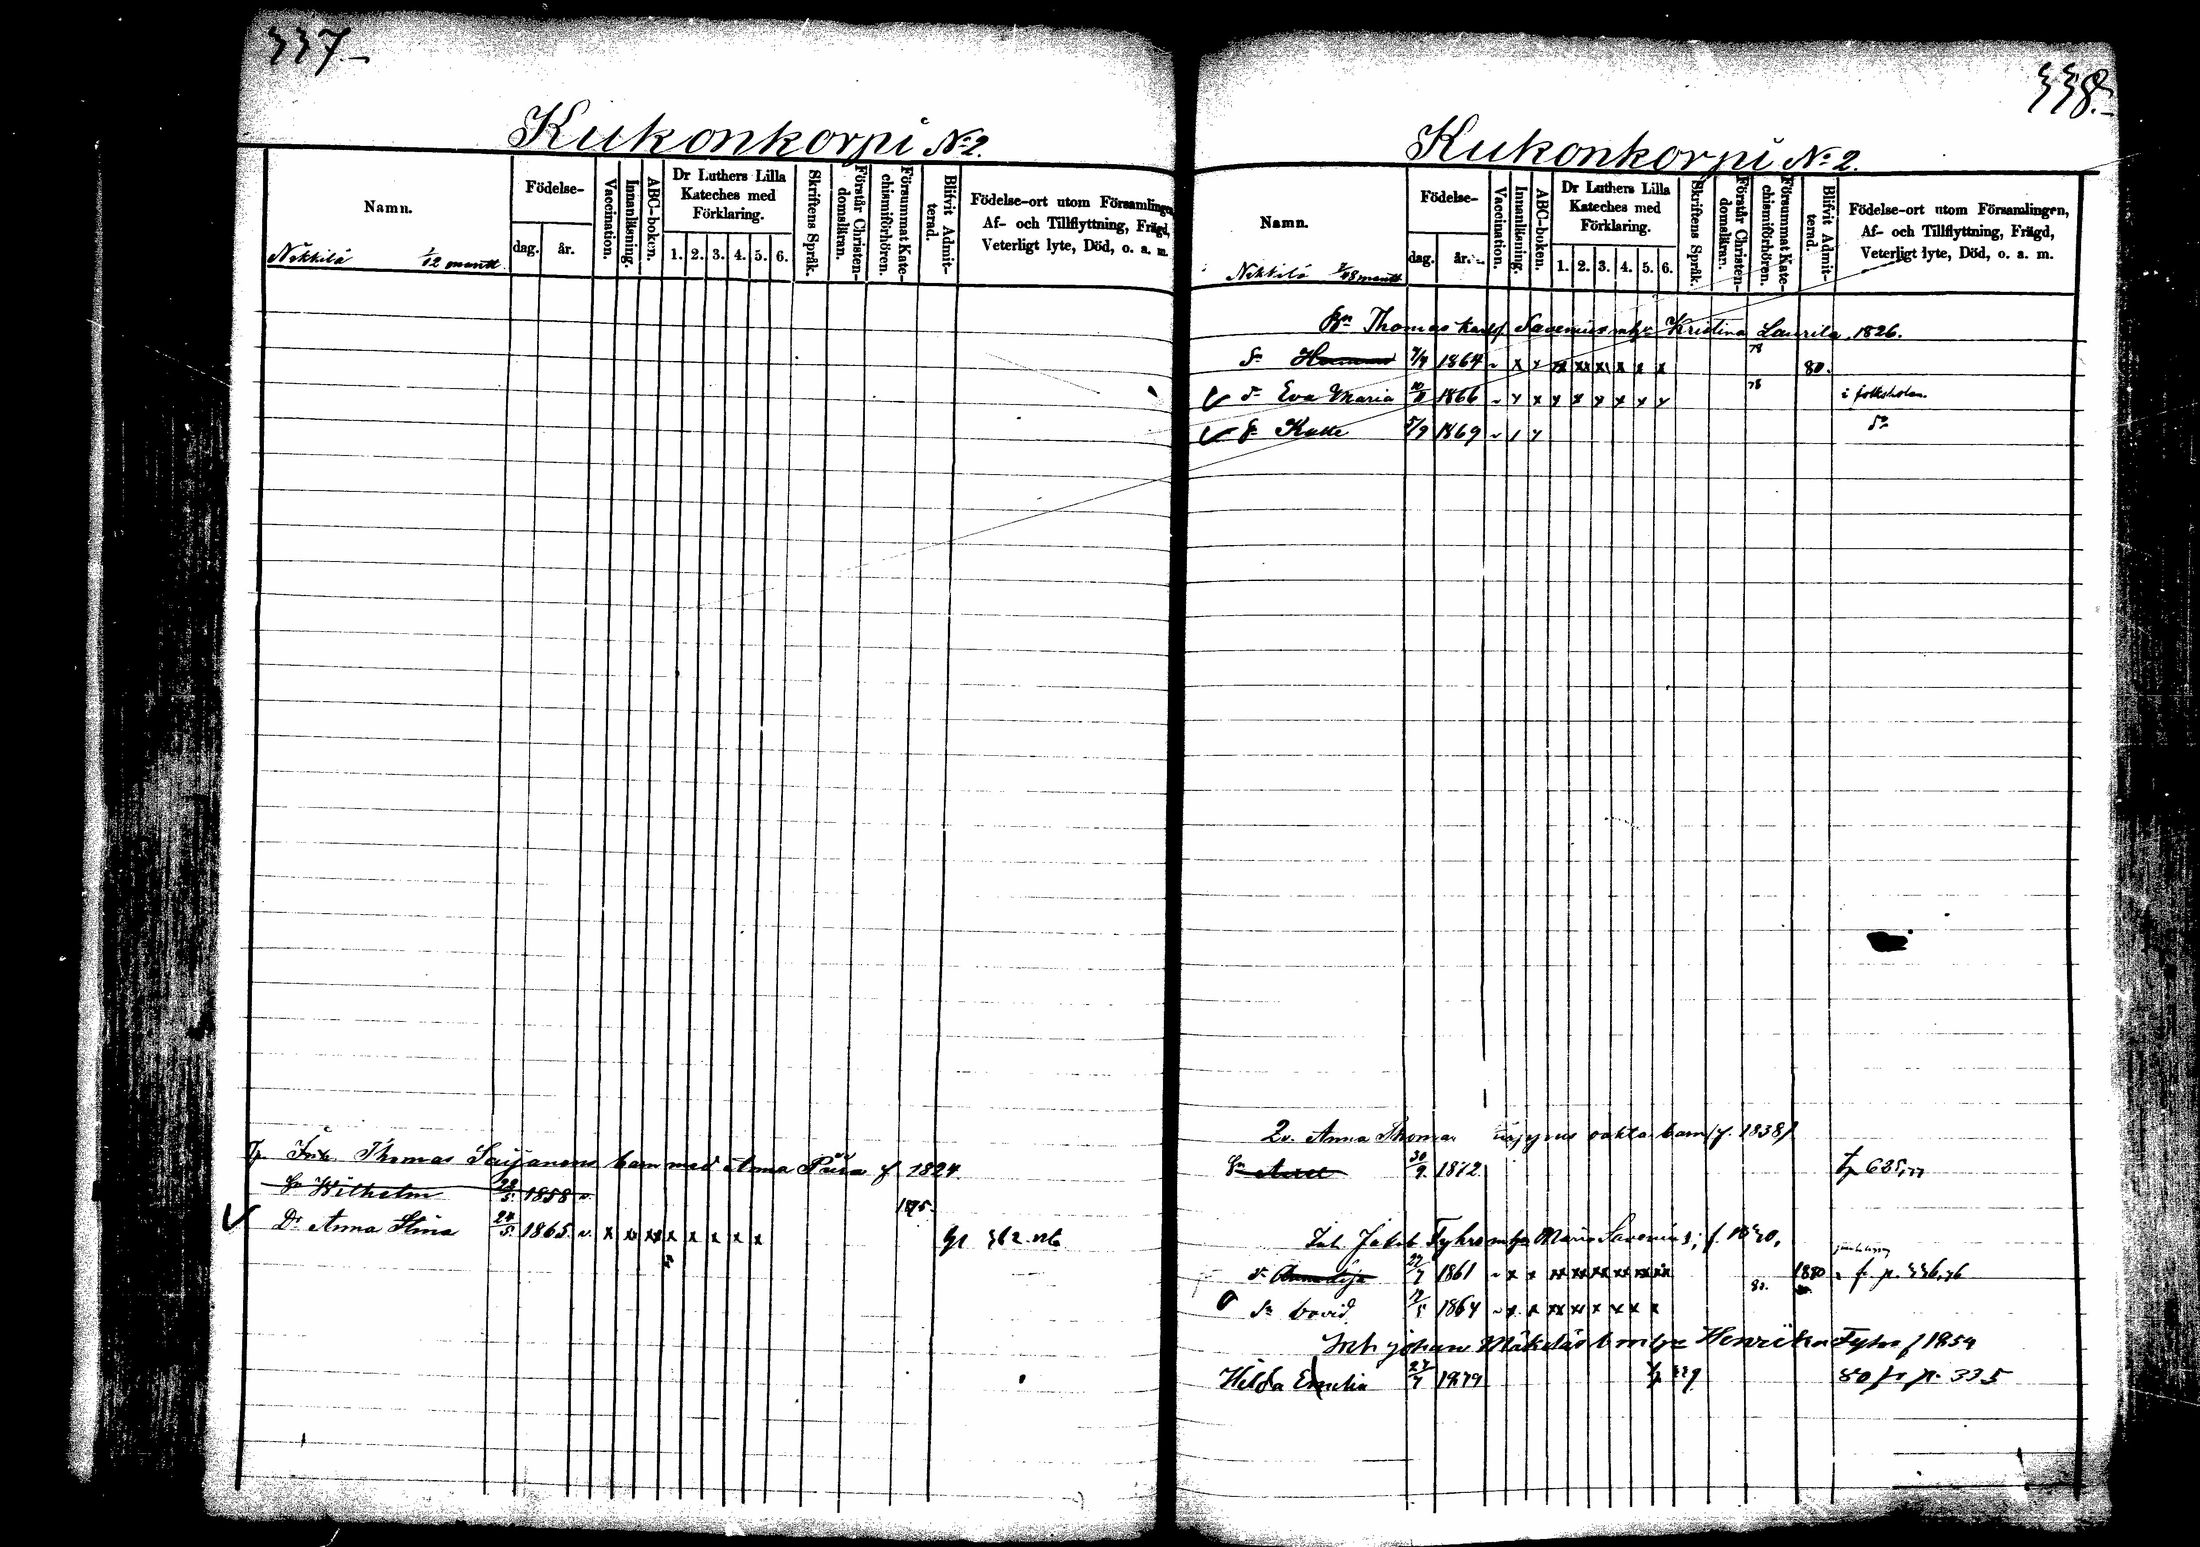 337.
Kukonkorpi No 2.
Namn.
Födelse-
dag.
år.
Vaccination.
Innanläsning.
ABC-boken.
Dr Luthers Lilla Kateches med Förklaring.
1. 2. 3. 4. 5. 6.
Skriftens Språk.
Förstår Christen-domsläran.
Försummat Kate-chismiförhören.
Blifvit Admit-terad.
Födelse-ort utom Församlingen,
Af- och Tillflyttning, Frägd,
Veterligt lyte, Död, o. a. m.
Nikkilä 1/12 mantl
Thomas Saijanens barn med Anna f 1824.
Sn Wilhelm 28/5 1858 v.
1875.
Dr Anna Stina 24/5 1865. v. x x xx x x x x x
362
338.
Kukonkorpi No 2.
Namn.
Födelse-
dag.
år.
Vaccination.
Innanläsning.
ABC-boken.
Dr Luthers Lilla Kateches med Förklaring.
1. 2. 3. 4. 5. 6.
Skriftens Språk.
Förstår Christen-domsläran.
Försummat Kate-chismiförhören.
Blifvit Admit-terad.
Födelse-ort utom Församlingen,
Af- och Tillflyttning, Frägd,
Veterligt lyte, Död, o. a. m.
Nikkilä 1/48 mantl
Bn Thomas Savenius Kristina Laurila, 1826.
1864 78 80.
Eva Maria 1866 78 i folkskolan.
Kalle 5/9 1869 Do
Anna Thomas oäkta barn f. 1838
Sn Axel 30/9 1872 635,77
Inh. Jakob Fyhrs Maria Savenius, f.
1861 1880 fr. p. 336,76
Sn David 1864 80.
Inh Johan Mäkeläs Henrika Fyhr f 1854
Hilda Emelia 27/7 1879 80 fr p. 335